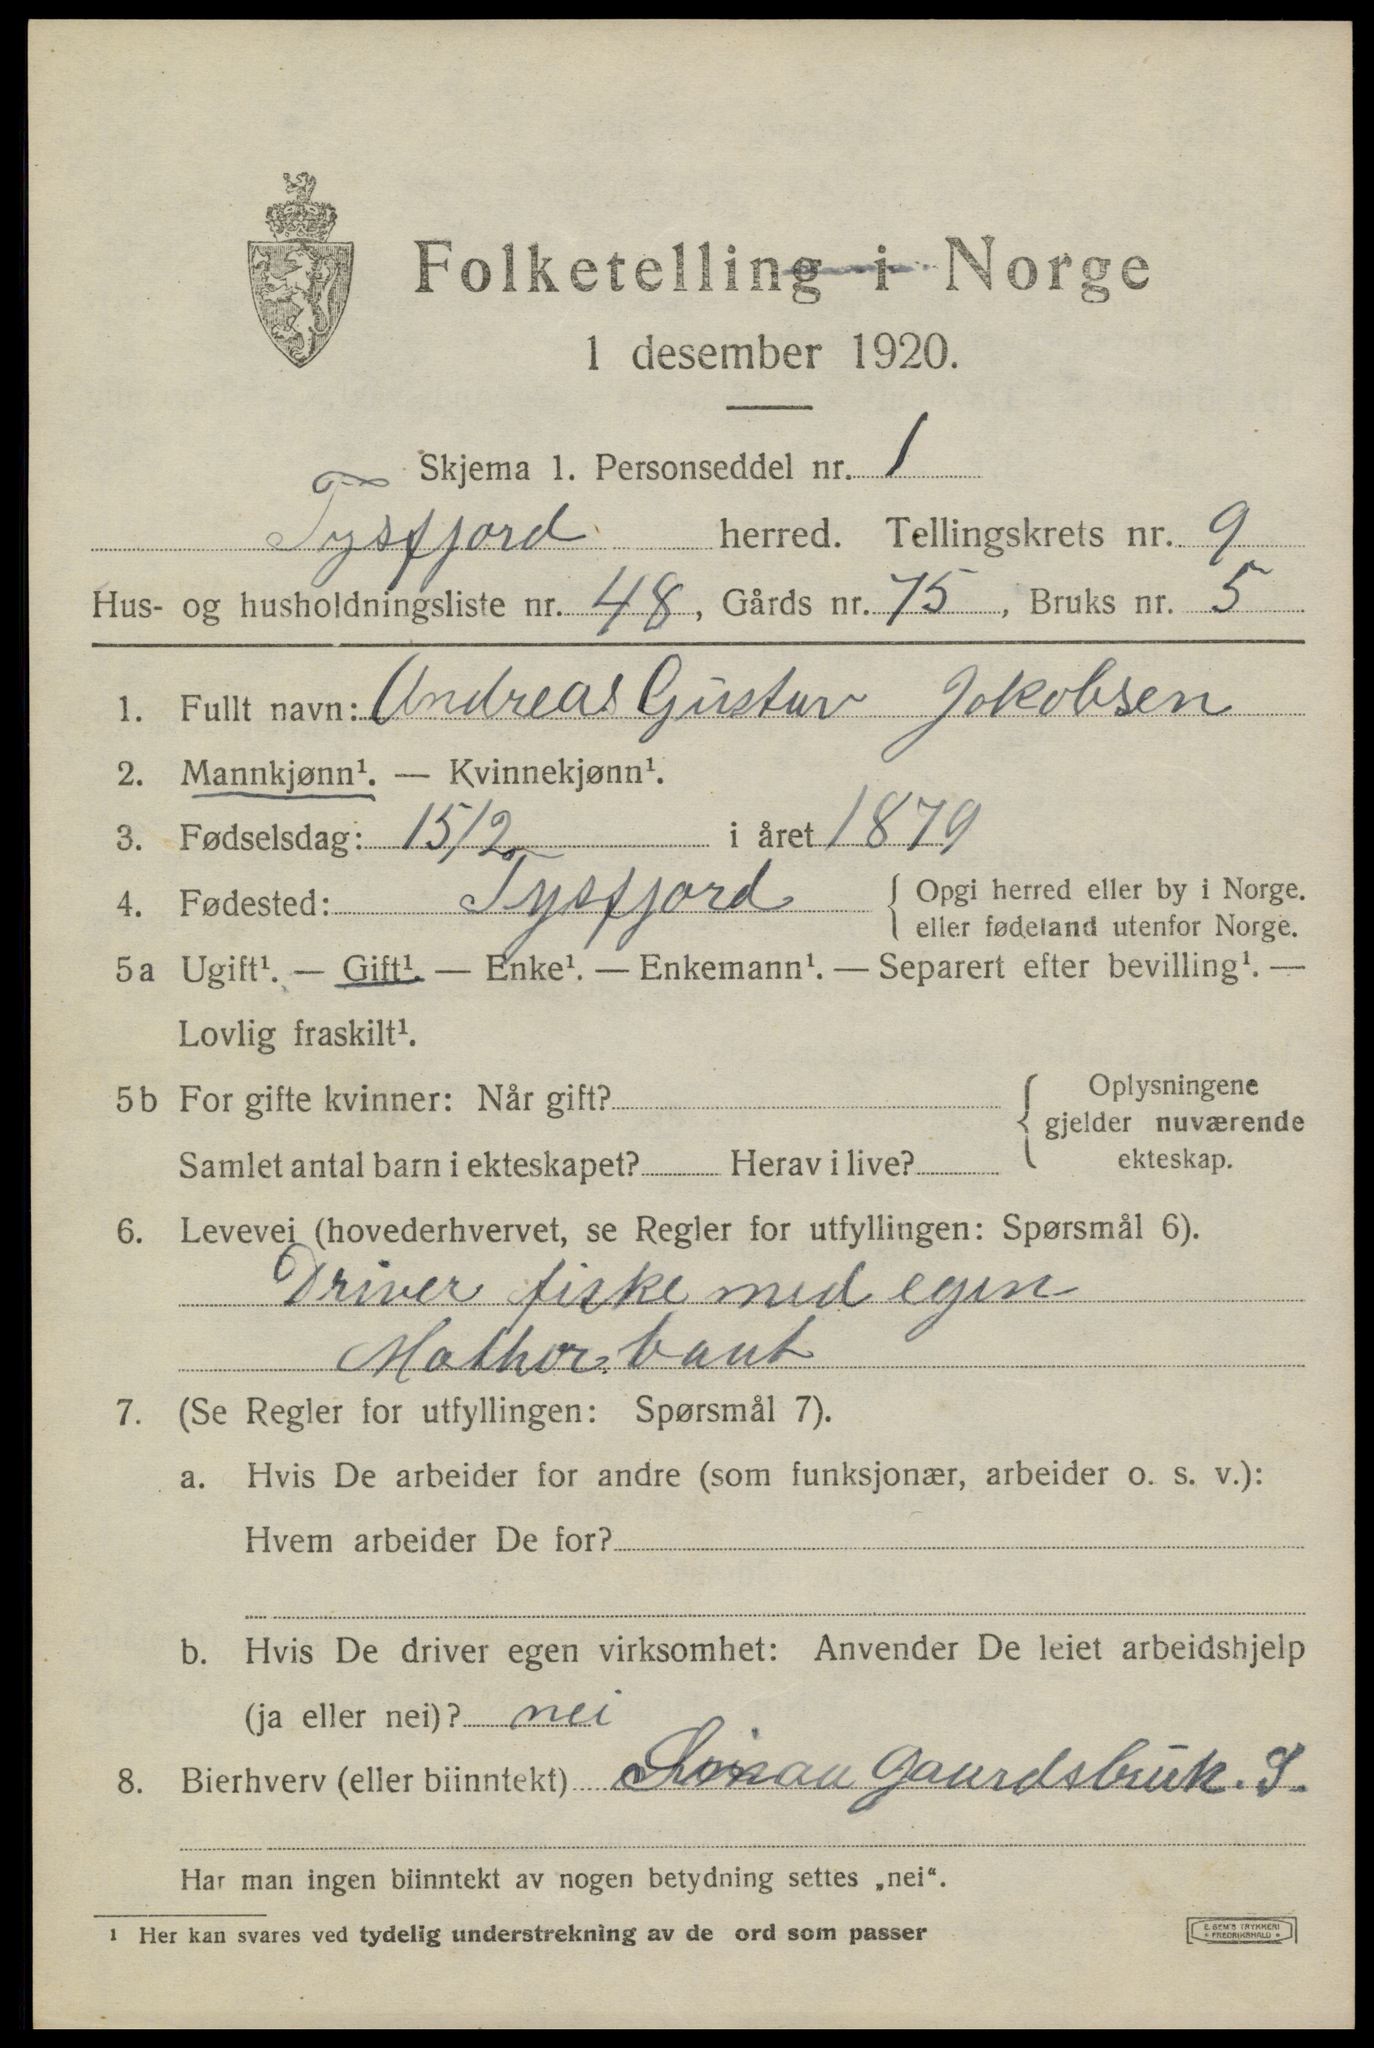 Folketelling i Norge
1 desember 1920.
Skjema 1. Personseddel nr. 1
Tysfjord herred. Tellingskrets nr. 9
Hus- og husholdningsliste nr. 48, Gårds nr. 75, Bruks nr. 5
1. Fullt navn: Andreas Gustav Jakobsen
2. Mannkjønn¹. — Kvinnekjønn¹.
3. Fødselsdag: 15/2 i året 1879
4. Fødested: Tysfjord { Opgi herred eller by i Norge.
eller fødeland utenfor Norge.
5a Ugift¹. — Gift¹. — Enke¹. — Enkemann¹. — Separert efter bevilling¹. —
Lovlig fraskilt¹.
5b For gifte kvinner: Når gift? { Oplysningene
gjelder nuværende
Samlet antal barn i ekteskapet? Herav i live? ekteskap.
6. Levevei (hovederhvervet, se Regler for utfyllingen: Spørsmål 6).
Driver fiske med egen
Mathor baut
7. (Se Regler for utfyllingen: Spørsmål 7).
a. Hvis De arbeider for andre (som funksjonær, arbeider o. s. v.):
Hvem arbeider De for?
b. Hvis De driver egen virksomhet: Anvender De leiet arbeidshjelp
(ja eller nei)? nei
8. Bierhverv (eller biinntekt) Gaurdsbruk. S.
Har man ingen biinntekt av nogen betydning settes „nei“.
¹ Her kan svares ved tydelig understrekning av de ord som passer
E. SEM'S TRYKKERI
FREDRIKSHALD